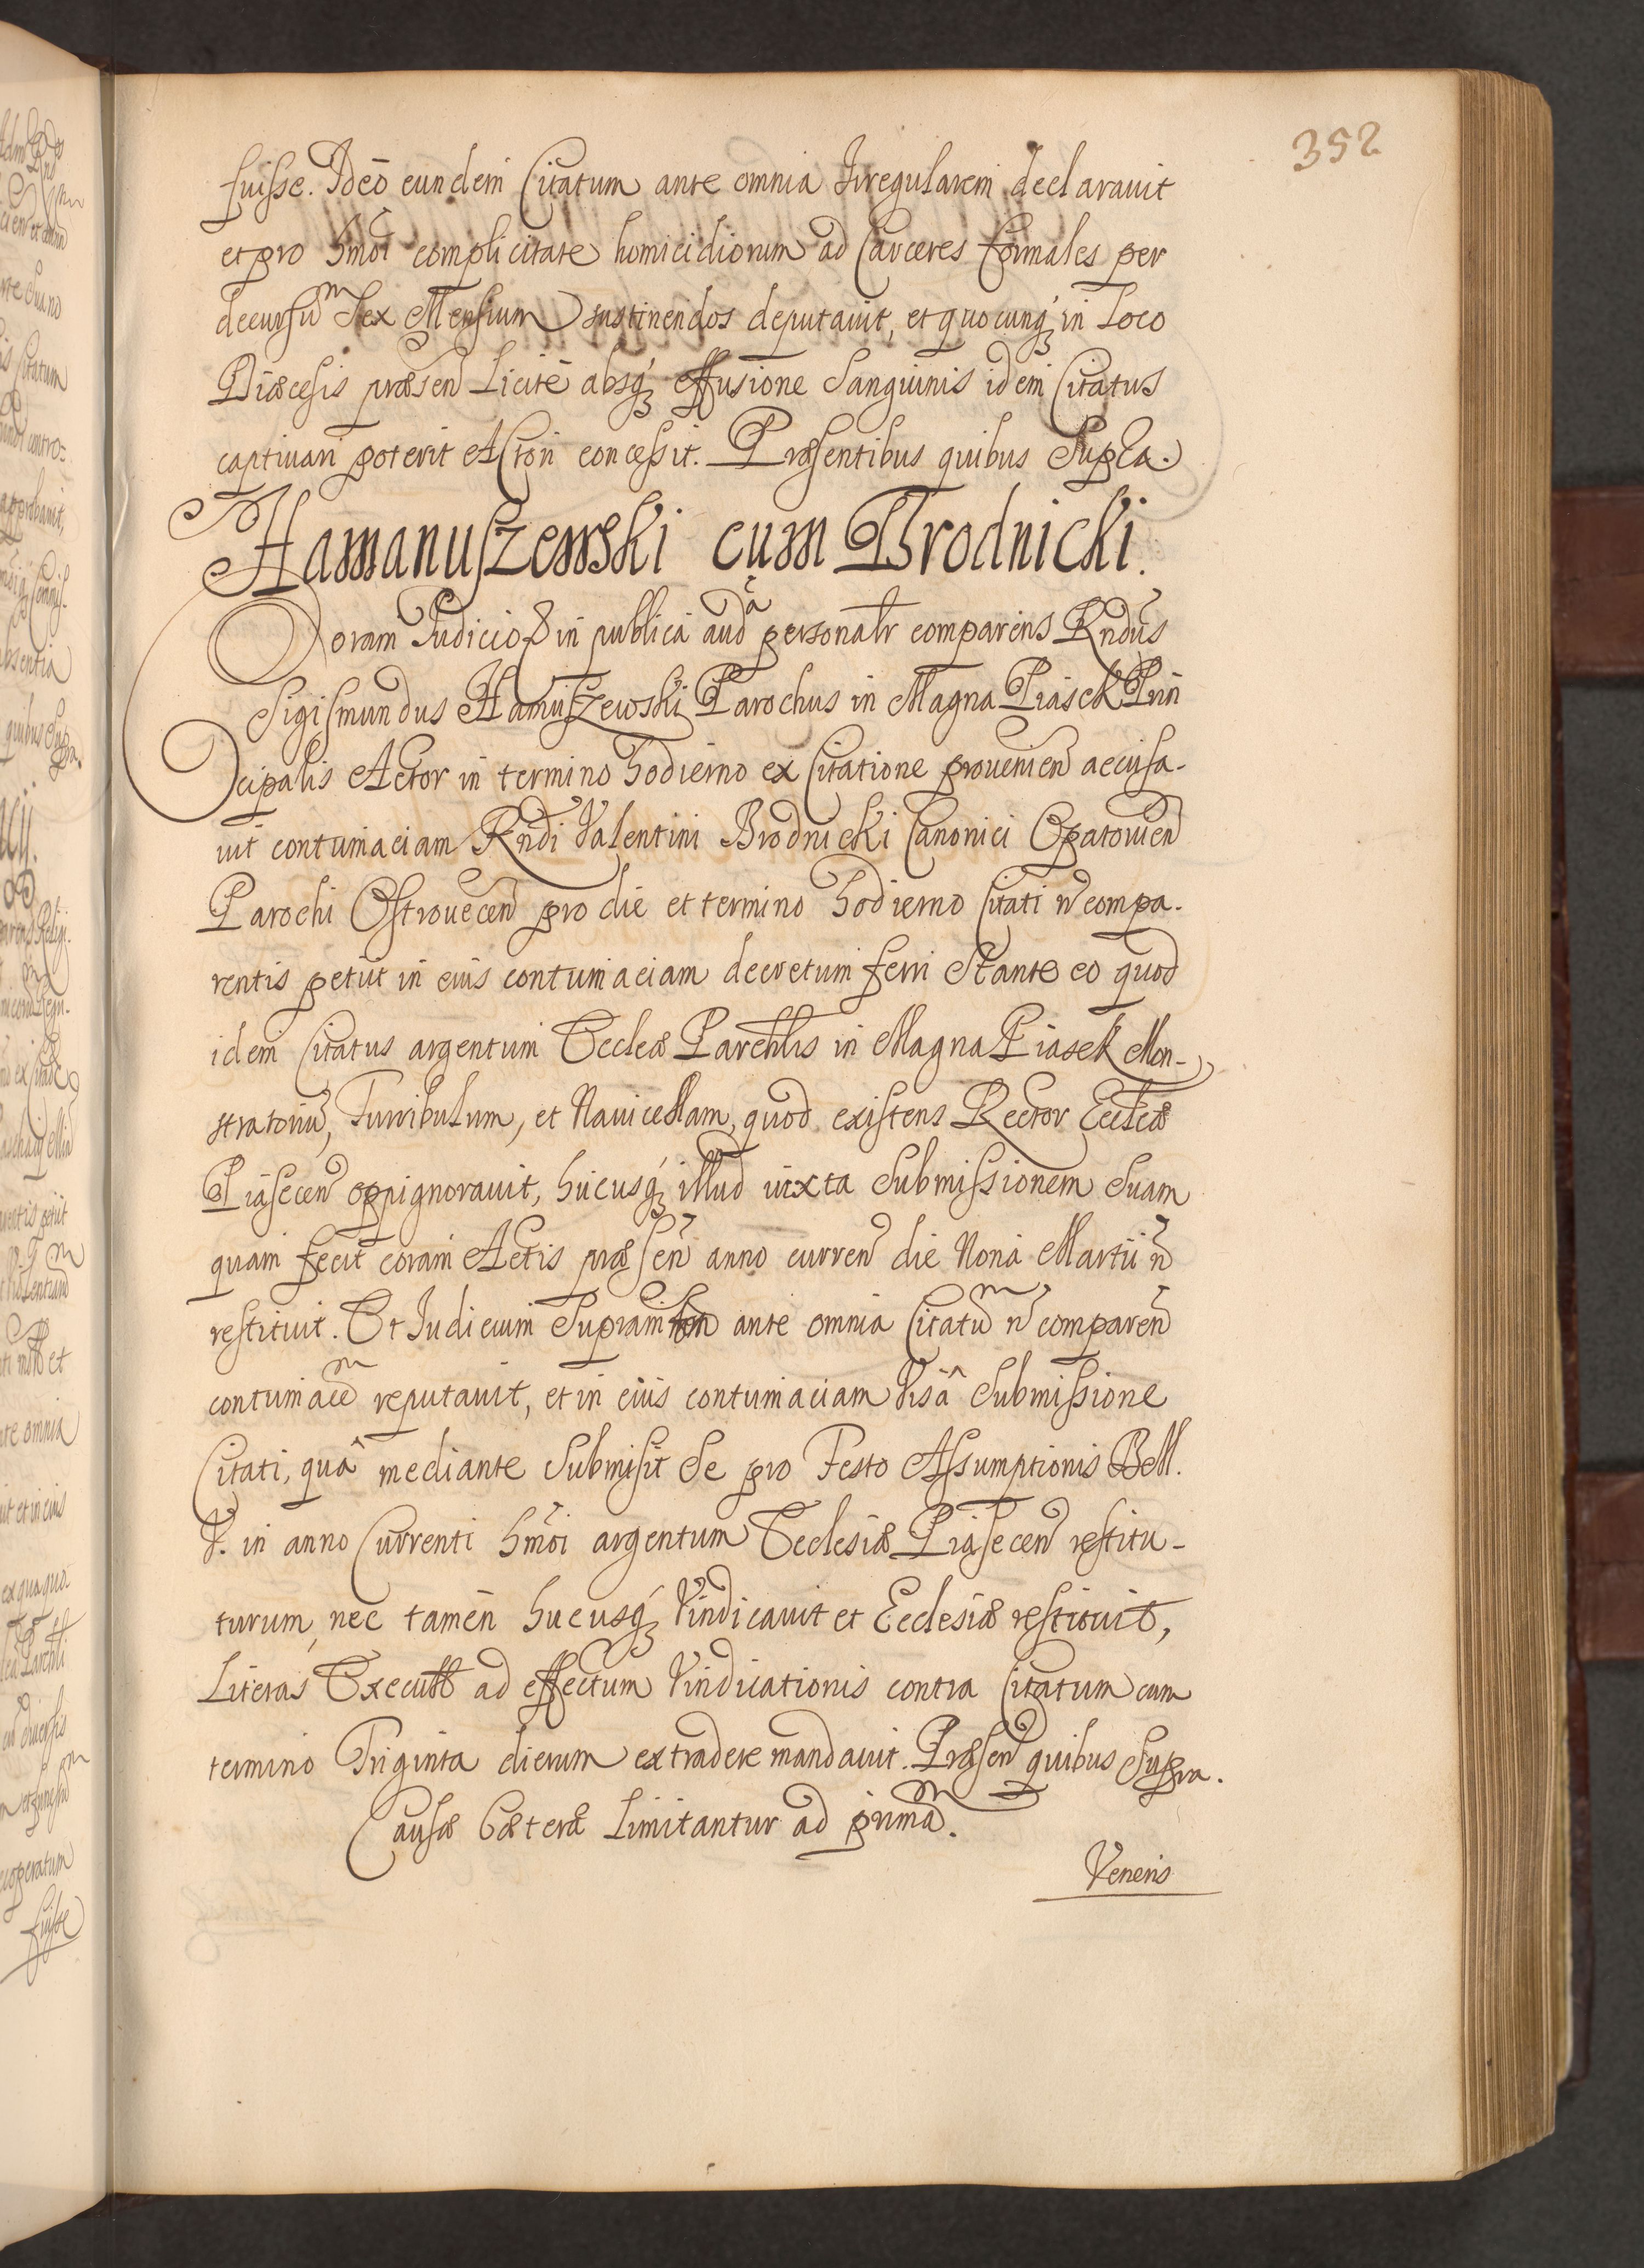 352
fuisse. Ideo eundem Citatum ante omnia Irregularem declarauit
et pro hmoi complicitate homicidiorum ad Carceres formales per
decursum Sex Mensium sustinendos deputauit, et quocunq́ in Loco
Diæcesis præsen Licite absq́ effusione Sanguinis idem Citatus
captiuari poterit Actori concessit. Præsentibus quibus Supra.
Hamanuszewski cum Brodnicki.
Coram Judicio in publica auda personalr comparens Rndus
Sigismundus Hamuszewski Parochus in Magna Piasek Prin
cipalis Actor in termino hodierno ex Citatione prouenien accusa-
uit contumaciam Rndi Valentini Brodnicki Canonici Opatouien
Parochi Ostrouecen pro die et termino hodierno Citati n compa-
rentis petiit in eius contumaciam decretum ferri Stante eo quod
idem Citatus argentum Eccleæ Parchlis in Magna Piasek Mon-
stratoriu, Turribulum, et Nauicellam, quod existens Rector Eccleæ
Piasecen oppignorauit, hucusq́ illud iuxta Submissionem Suam
quam fecit coram Actis præsen anno curren die Nona Martii n
restituit. Et Judicium Supram ante omnia Citatum n comparen
contumacem reputauit, et in eius contumaciam Visâ Submissione
Citati, quâ mediante Submisit Se pro Festo Assumptionis BM.
V. in anno Currenti hmoi argentum Ecclesiæ Piasecen restitu-
turum, nec tamen hucusq́ Vindicauit et Ecclesiæ restituit,
Literas Execut ad effectum Vindicationis contra Citatum cum
termino Triginta dierum extradere mandauit. Præsen quibus Supra.
Causæ Cæteræ Limitantur ad primam.
Veneris